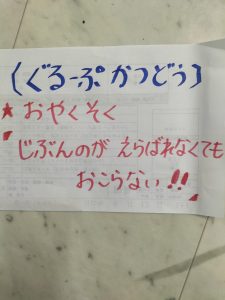 (ぐるーぷかつどう)
★おやくそく
「じぶんのが えらばれなくても
おこらない!!」